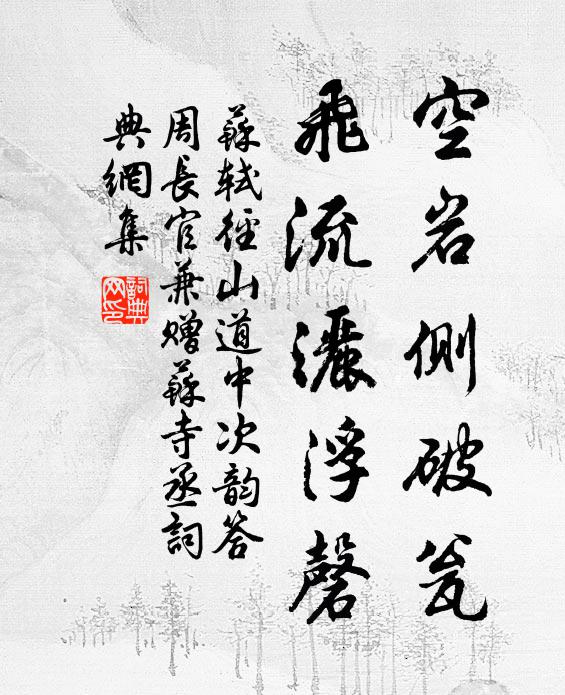 空岩侧破瓮
飛流灑浮磬
蘇轼徑山道中次韵答
周長官兼赠蘇寺丞詞
典網集
詞典
网印